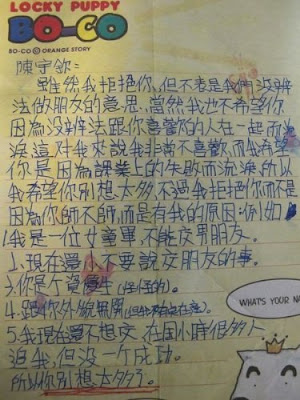 LOCKY PUPPY
BO-CO
BO-CO © ORANGE STORY
陳宇欽:
雖然我拒絕你,但不表是我們沒辨
法做朋友的意思,當然我也不希望你
因為沒辨法跟你喜歡的人在一起而流
淚這對我來說我非常不喜歡,而我希望
你是因為課業上的失敗而流淚,所以
我希望你別想太多,不過我拒絕你而不是
因為你帥不帥,而是有我的原因:例如
1.我是一位女童軍,不能交男朋友。
2.現在還小不要說交朋友的事。
3.你是個資優生
4.跟你外貌無關
5.我現在還不想交,在國小時很多人
追我,但没一个成功。
所以你別想太多了。
WHAT'S YOUR NA